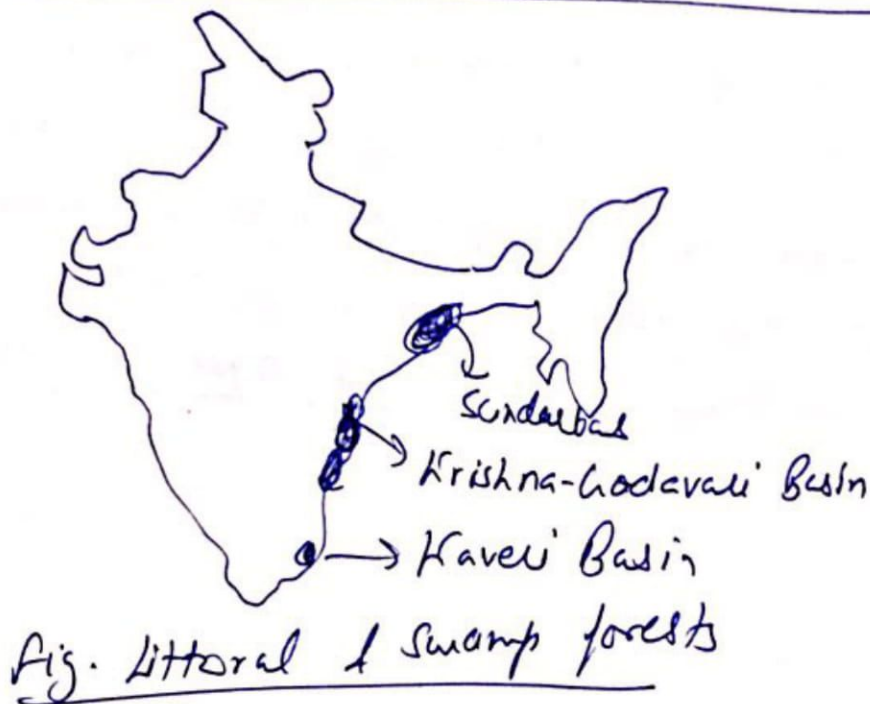 Sundarbas
Krishna-Godavari Basin
Kaveri Basin
Fig. Littoral & Swamp forests